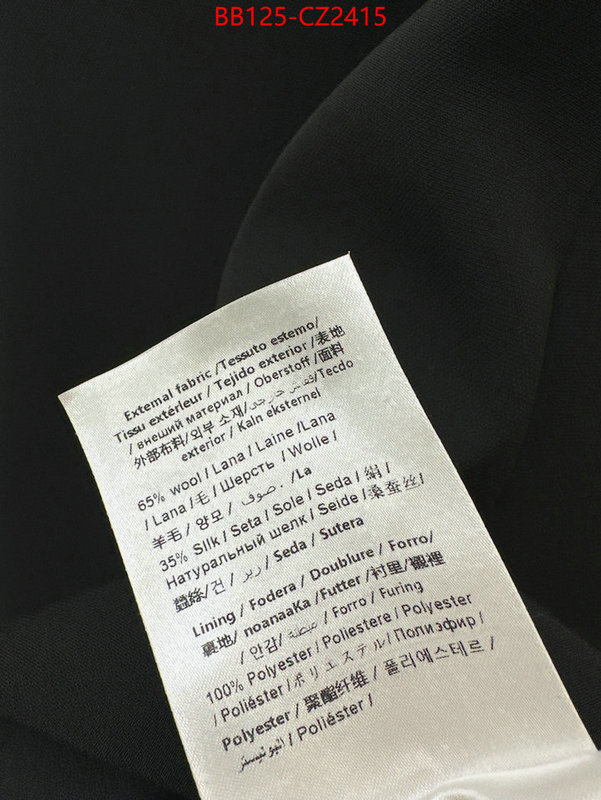 BB125-CZ2415
Extemal fabric /Tessuto estemo/
Tissu extérleur / Tejido exterior /表地
/ внеший материал / Oberstoff /面料
外部布料/외부 소재/قماش خارجي/Tecdo
exterior / Kain eksternel
65% wool / Lana / Laine /Lana
/ Lana /毛 / Шерсть / Wolle /
羊毛 / 양모 / صوف. /La
35% Silk / Seta / Sole / Seda / 絹 /
Натуральный шелк / Seide /桑蚕丝/
蠶絲/건 / رير / Seda / Sutera
Lining / Fodera / Doublure / Forro/
裏地/ noanaaKa /Futter /衬里/襯裡
/ 안감/ / Forro / Furing
100% Polyester / Poliestere / Polyester
/ Poliéster /ポリエステル/ Полиэфир /
Polyester / 聚酯纤维 / 폴리에스테르 /
/ Poliéster /